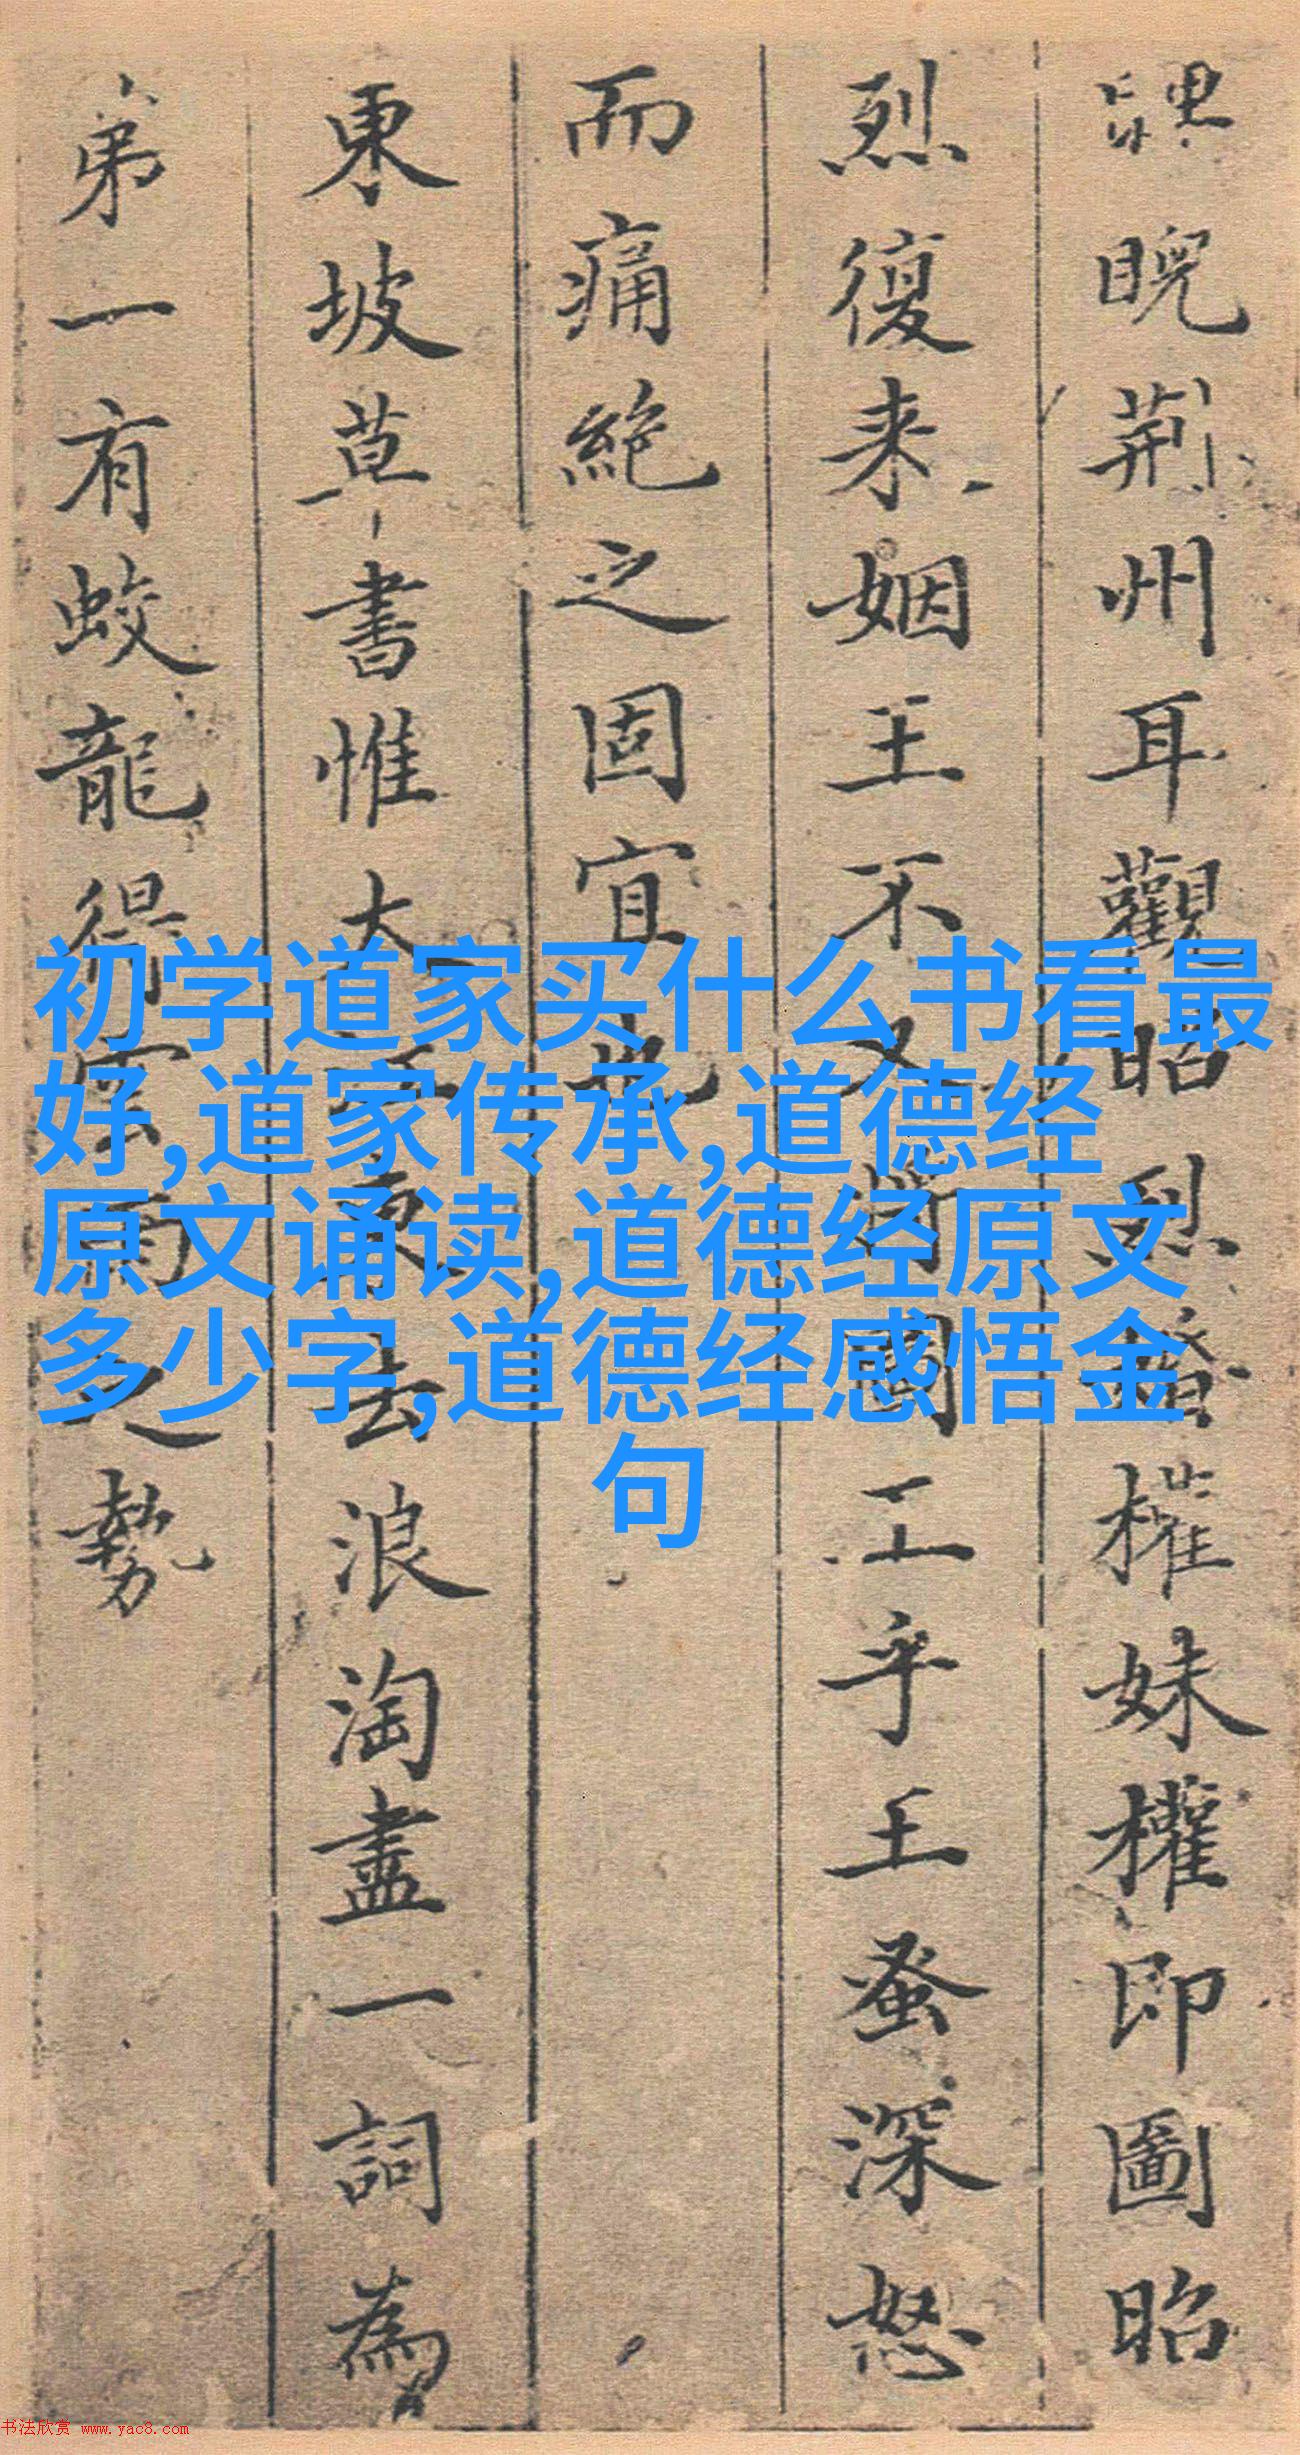 睨荊州耳觀昭烈
權妹權即圖昭
烈復来姻王不又
國工乎王蚤深怒
而痛絶之固宜也
東坡草書惟大江東去浪淘盡一詞為
弟一有蛟龍得雲雨之勢
初学道家买什么书看最
好,道家传承,道德经
原文诵读,道德经原文
多少字,道德经感悟金
句
书法欣赏 www.yac8.com